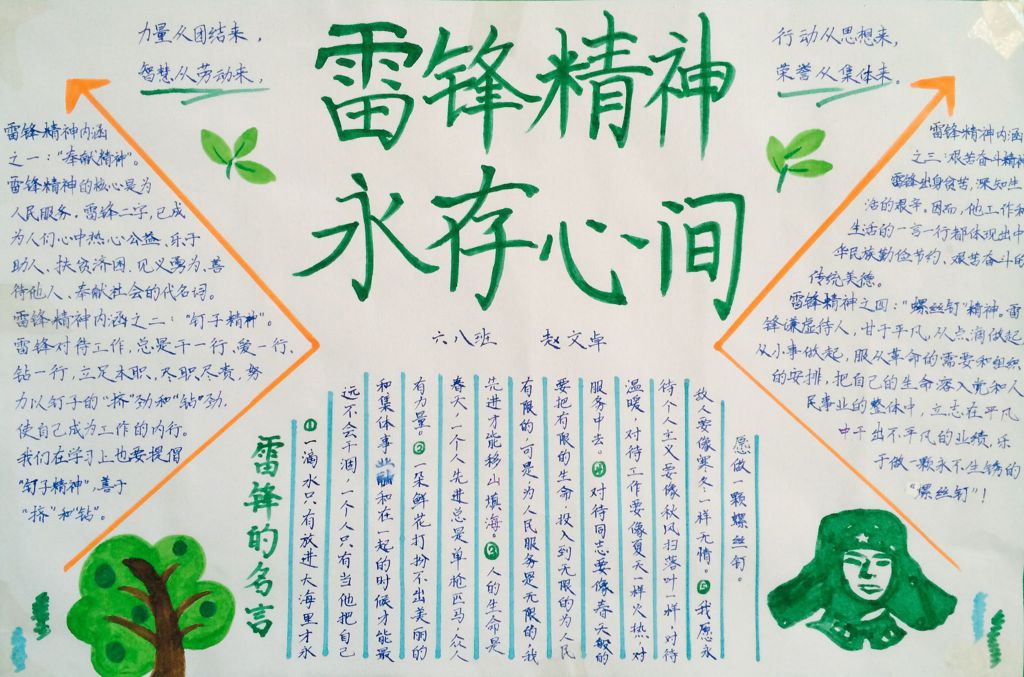 力量从团结来，
智慧从劳动来，
行动从思想来，
荣誉从集体来。
雷锋精神
永存心间
六八班 赵文卓
雷锋精神内涵
之一："奉献精神"。
雷锋精神的核心是为
人民服务，雷锋二字，已成
为人们心中热心公益、乐于
助人、扶贫济困、见义勇为、善
待他人、奉献社会的代名词。
雷锋精神内涵之二："钉子精神"。
雷锋对待工作，总是干一行、爱一行、
钻一行，立足本职、尽职尽责，努
力以钉子的"挤"劲和"钻"劲，
使自己成为工作的内行。
我们在学习上也要提倡
"钉子精神"，善于
"挤"和"钻"。
雷锋的名言
❶一滴水只有放进大海里才永
远不会干涸，一个人只有当他把自己
和集体事业融和在一起的时候才能最
有力量。❷一朵鲜花打扮不出美丽的
春天，一个人先进总是单枪匹马，众人
先进才能移山填海。❸人的生命是
有限的，可是，为人民服务是无限的，我
要把有限的生命，投入到无限的为人民
服务中去。❹对待同志要像春天般的
温暖，对待工作要像夏天一样火热，对
待个人主义要像秋风扫落叶一样，对待
敌人要像寒冬一样无情。❺我愿永
愿做一颗螺丝钉。
雷锋精神内涵
之三：艰苦奋斗精神
雷锋出身贫苦，深知生
活的艰辛。因而，他工作和
生活的一言一行都体现出中
华民族勤俭节约、艰苦奋斗的
传统美德。
雷锋精神之四："螺丝钉"精神。雷
锋谦虚待人，甘于平凡，从点滴做起
从小事做起，服从革命的需要和组织
的安排，把自己的生命溶入党和人
民事业的整体中，立志在平凡
中干出不平凡的业绩，乐
于做一颗永不生锈的
"螺丝钉"！